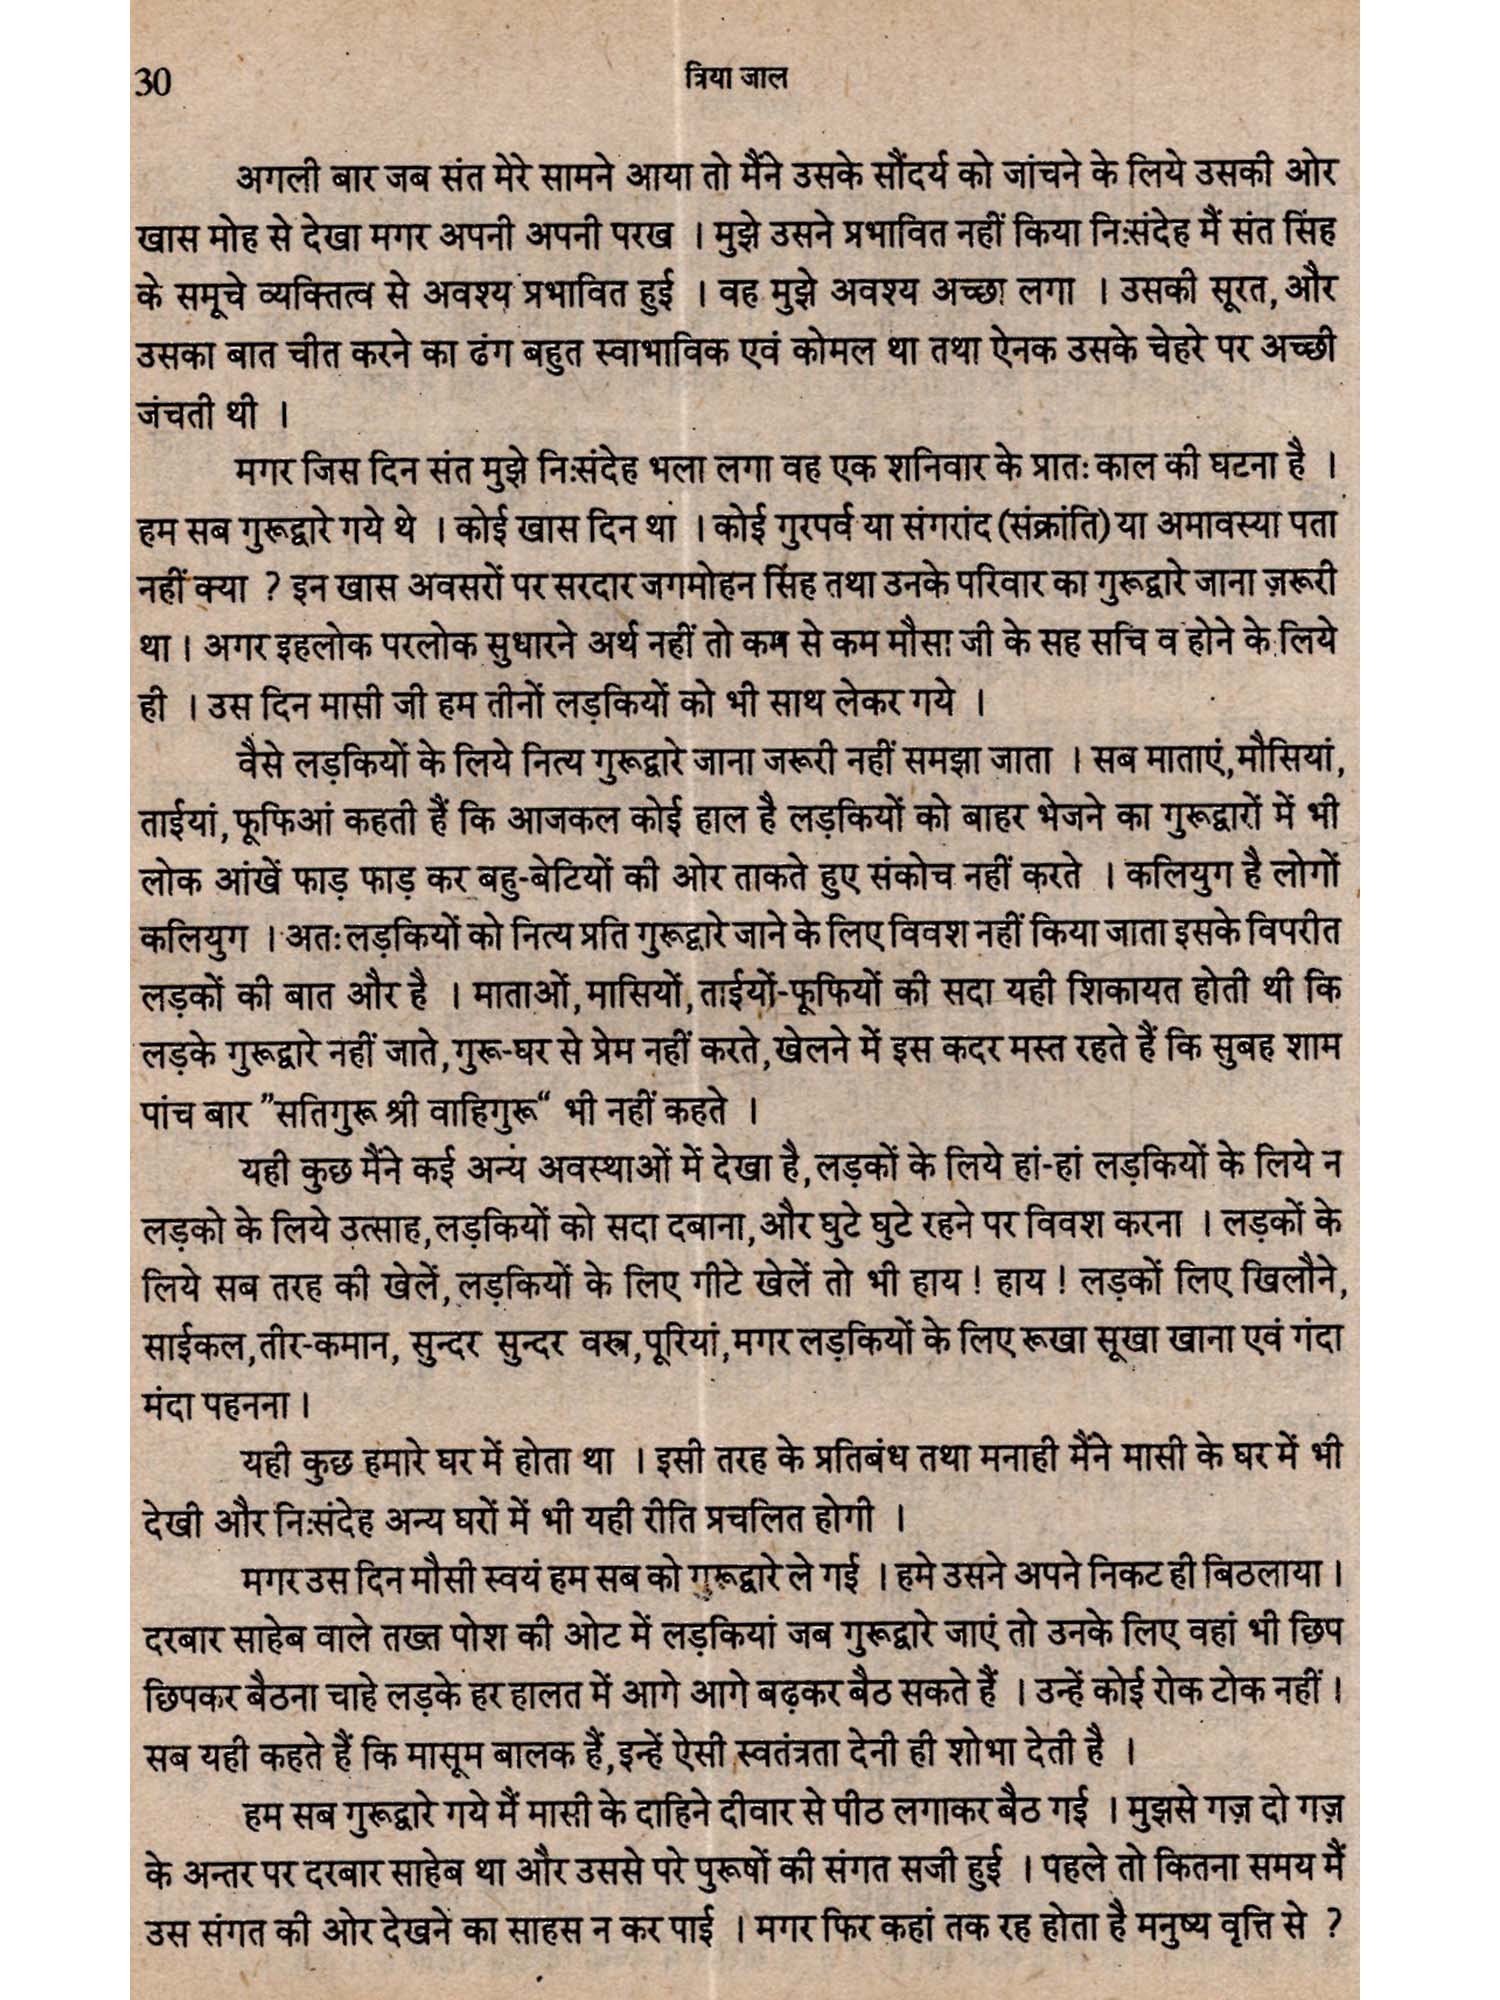 30
त्रिया जाल
अगली बार जब संत मेरे सामने आया तो मैंने उसके सौंदर्य को जांचने के लिये उसकी ओर
खास मोह से देखा मगर अपनी अपनी परख । मुझे उसने प्रभावित नहीं किया निःसंदेह मैं संत सिंह
के समूचे व्यक्तित्व से अवश्य प्रभावित हुई । वह मुझे अवश्य अच्छा लगा । उसकी सूरत, और
उसका बात चीत करने का ढंग बहुत स्वाभाविक एवं कोमल था तथा ऐनक उसके चेहरे पर अच्छी
जंचती थी ।
मगर जिस दिन संत मुझे निःसंदेह भला लगा वह एक शनिवार के प्रातः काल की घटना है ।
हम सब गुरूद्वारे गये थे । कोई खास दिन था । कोई गुरपर्व या संगरांद (संक्रांति) या अमावस्या पता
नहीं क्या ? इन खास अवसरों पर सरदार जगमोहन सिंह तथा उनके परिवार का गुरूद्वारे जाना ज़रूरी
था । अगर इहलोक परलोक सुधारने अर्थ नहीं तो कम से कम मौसा जी के सह सचि व होने के लिये
ही । उस दिन मासी जी हम तीनों लड़कियों को भी साथ लेकर गये ।
वैसे लड़कियों के लिये नित्य गुरूद्वारे जाना जरूरी नहीं समझा जाता । सब माताएं, मौसियां,
ताईयां, फूफिआं कहती हैं कि आजकल कोई हाल है लड़कियों को बाहर भेजने का गुरूद्वारों में भी
लोक आंखें फाड़ फाड़ कर बहु-बेटियों की ओर ताकते हुए संकोच नहीं करते । कलियुग है लोगों
कलियुग । अतः लड़कियों को नित्य प्रति गुरूद्वारे जाने के लिए विवश नहीं किया जाता इसके विपरीत
लड़कों की बात और है । माताओं, मासियों, ताईयों-फूफियों की सदा यही शिकायत होती थी कि
लड़के गुरूद्वारे नहीं जाते, गुरू-घर से प्रेम नहीं करते, खेलने में इस कदर मस्त रहते हैं कि सुबह शाम
पांच बार ”सतिगुरू श्री वाहिगुरू“ भी नहीं कहते ।
यही कुछ मैंने कई अन्य अवस्थाओं में देखा है, लड़कों के लिये हां-हां लड़कियों के लिये न
लड़को के लिये उत्साह, लड़कियों को सदा दबाना, और घुटे घुटे रहने पर विवश करना । लड़कों के
लिये सब तरह की खेलें, लड़कियों के लिए गीटे खेलें तो भी हाय ! हाय ! लड़कों लिए खिलौने,
साईकल, तीर-कमान, सुन्दर सुन्दर वस्त्र, पूरियां, मगर लड़कियों के लिए रूखा सूखा खाना एवं गंदा
मंदा पहनना ।
यही कुछ हमारे घर में होता था । इसी तरह के प्रतिबंध तथा मनाही मैंने मासी के घर में भी
देखी और निःसंदेह अन्य घरों में भी यही रीति प्रचलित होगी ।
मगर उस दिन मौसी स्वयं हम सब को गुरूद्वारे ले गई । हमे उसने अपने निकट ही बिठलाया ।
दरबार साहेब वाले तख्त पोश की ओट में लड़कियां जब गुरूद्वारे जाएं तो उनके लिए वहां भी छिप
छिपकर बैठना चाहे लड़के हर हालत में आगे आगे बढ़कर बैठ सकते हैं । उन्हें कोई रोक टोक नहीं ।
सब यही कहते हैं कि मासूम बालक हैं, इन्हें ऐसी स्वतंत्रता देनी ही शोभा देती है ।
हम सब गुरूद्वारे गये मैं मासी के दाहिने दीवार से पीठ लगाकर बैठ गई । मुझसे गज़ दो गज़
के अन्तर पर दरबार साहेब था और उससे परे पुरूषों की संगत सजी हुई । पहले तो कितना समय मैं
उस संगत की ओर देखने का साहस न कर पाई । मगर फिर कहां तक रह होता है मनुष्य वृत्ति से ?